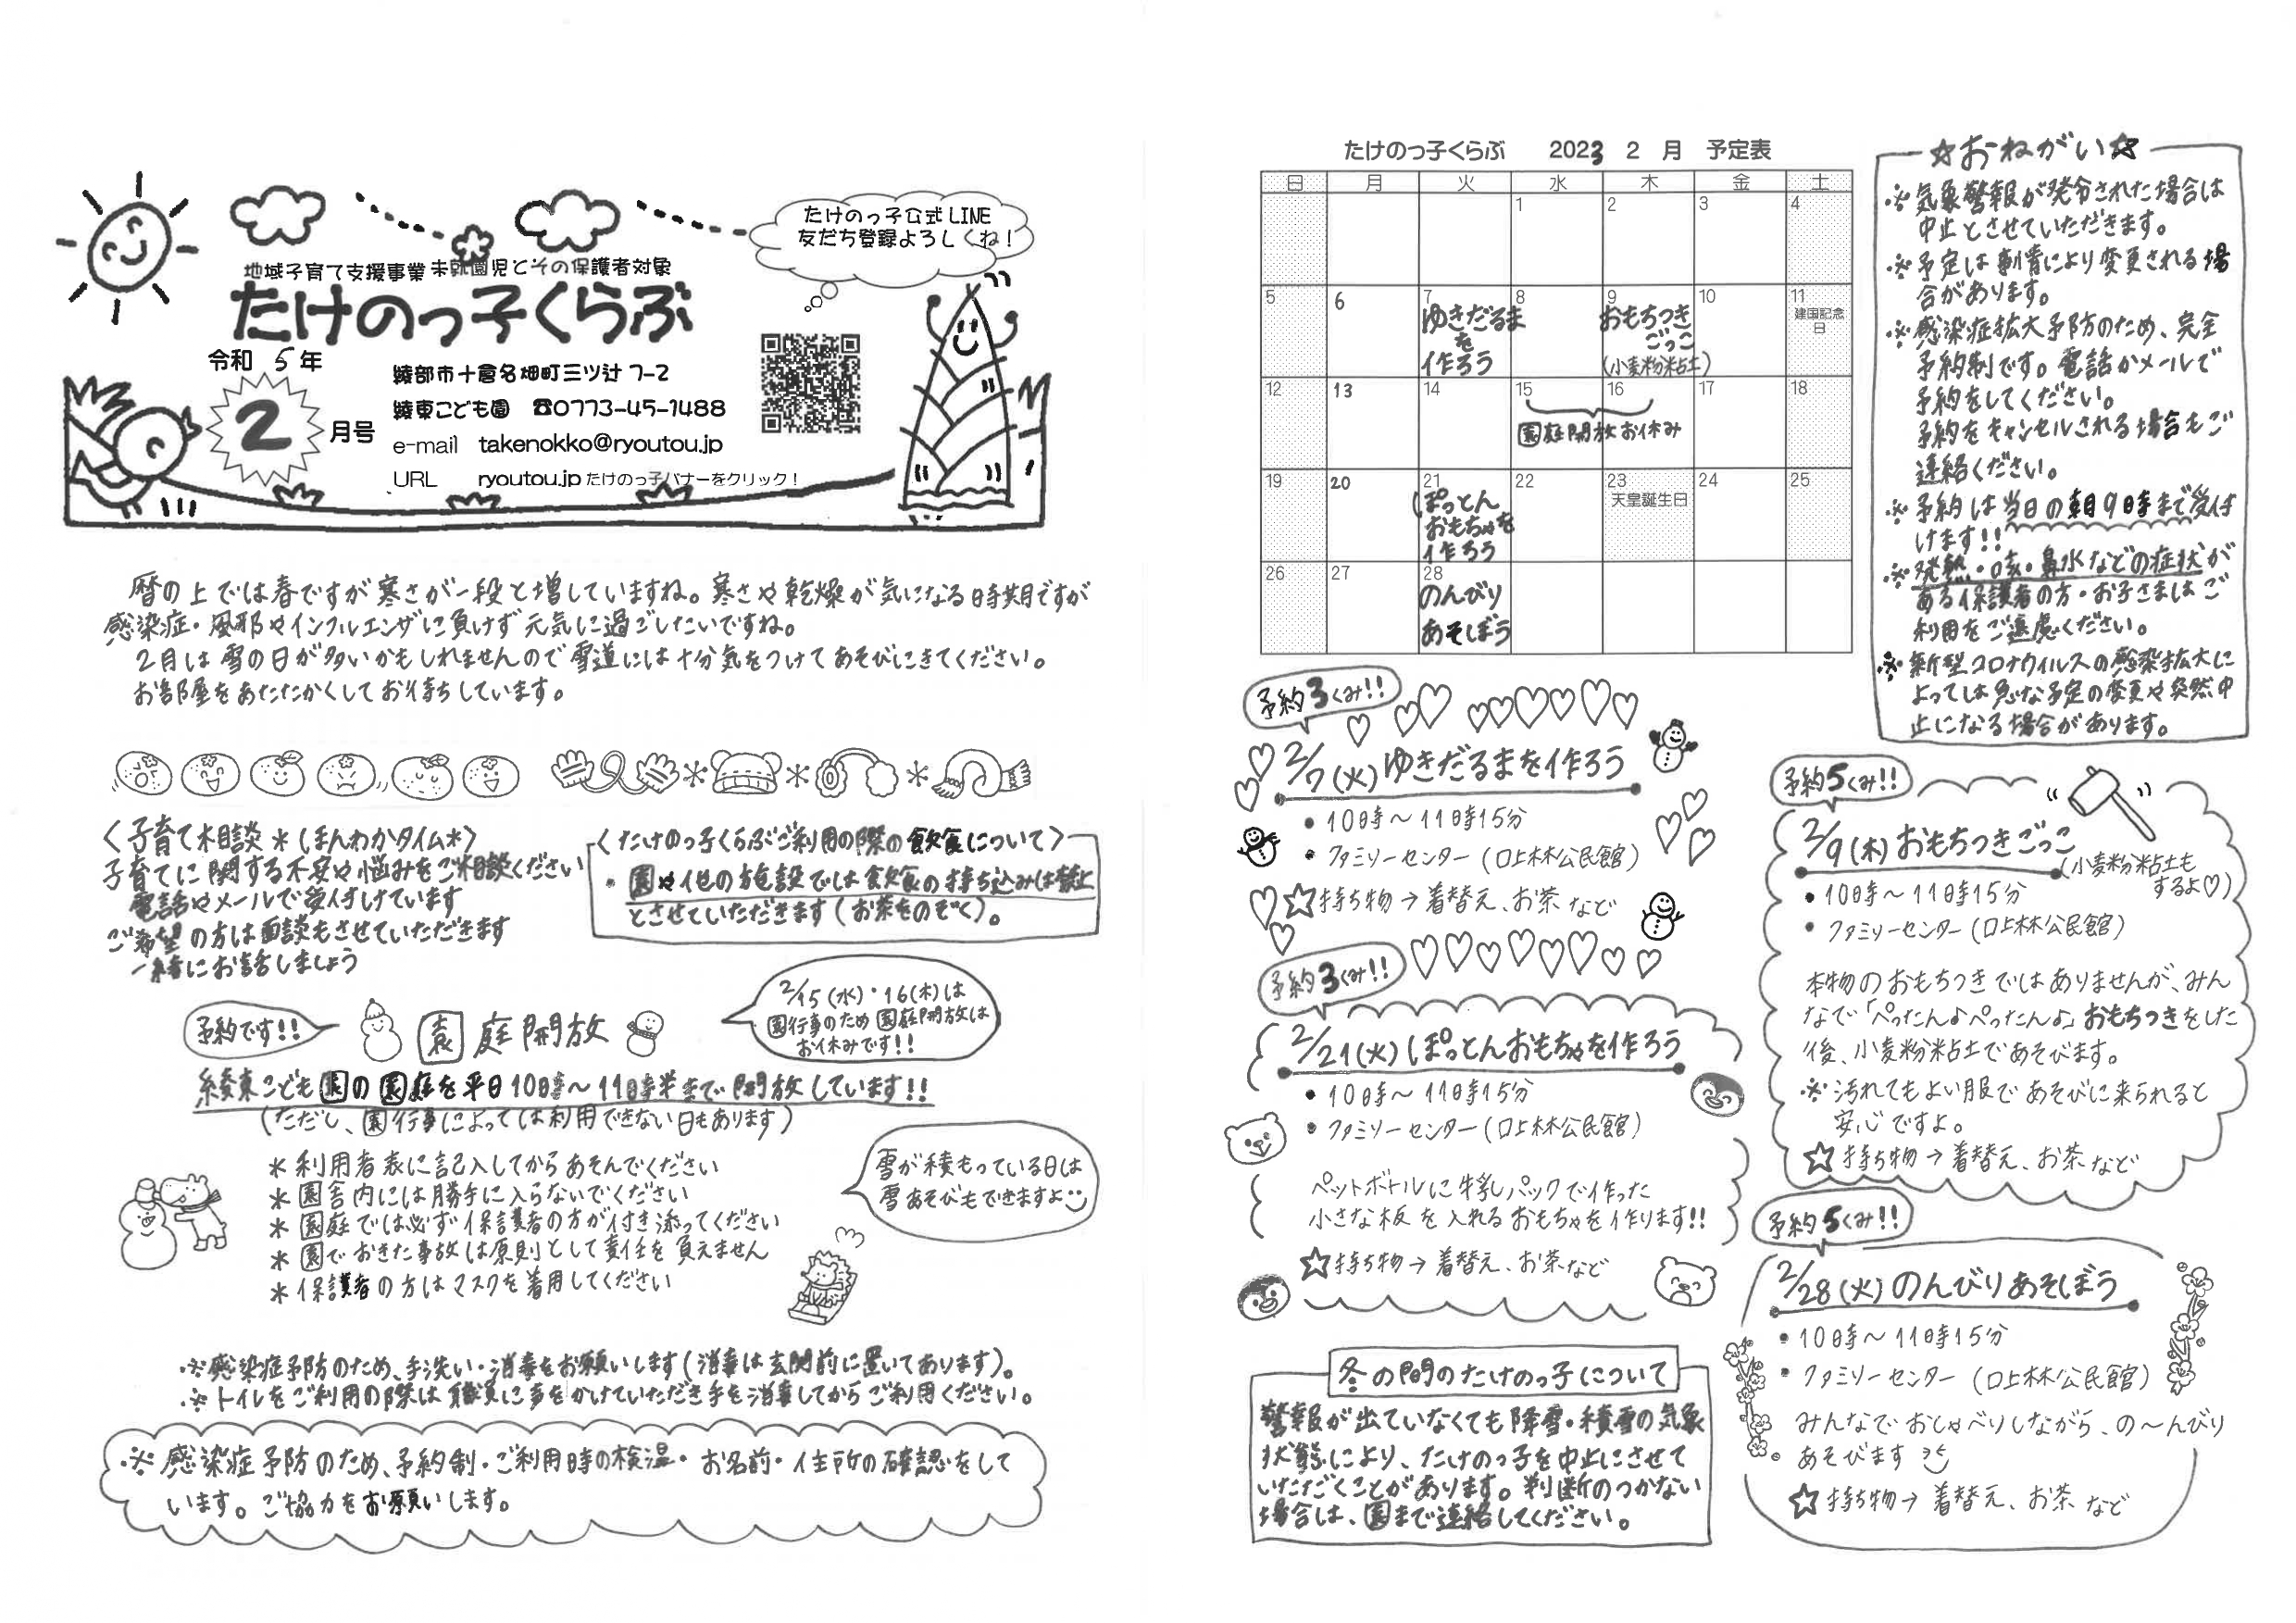 地域子育て支援事業 未就園児とその保護者対象
たけのっ子くらぶ
令和 5年
2
月号
たけのっ子公式LINE
友だち登録よろしくね！
綾部市十倉名畑町三ツ辻 7-2
綾東こども園 ☎0773-45-1488
e-mail takenokko@ryoutou.jp
URL ryoutou.jp たけのっ子バナーをクリック！
暦の上では春ですが寒さが一段と増していますね。寒さや乾燥が気になる時期ですが
感染症・風邪やインフルエンザに負けず元気に過ごしたいですね。
2月は雪の日が多いかもしれませんので雪道には十分気をつけてあそびにきてください。
お部屋をあたたかくしてお待ちしています。
〈子育て相談＊(ほんわかタイム＊)〉
子育てに関する不安や悩みをご相談ください
電話やメールで受付けています
ご希望の方は面談もさせていただきます
一緒にお話しましょう
〈たけのっ子くらぶご利用の際の飲食について〉
・園や他の施設では飲食の持ち込みは禁止
とさせていただきます(お茶をのぞく)。
予約です!!
園庭開放
2/15(水)・16(木)は
園行事のため園庭開放は
お休みです!!
綾東こども園の園庭を平日10時～11時半まで開放しています!!
(ただし、園行事によっては利用できない日もあります)
＊利用者表に記入してからあそんでください
＊園舎内には勝手に入らないでください
＊園庭では必ず保護者の方が付き添ってください
＊園でおきた事故は原則として責任を負えません
＊保護者の方はマスクを着用してください
雪が積もっている日は
雪あそびもできますよ
※感染症予防のため、手洗い・消毒をお願いします(消毒は玄関前に置いてあります)。
※トイレをご利用の際は職員に声をかけていただき手を消毒してからご利用ください。
※感染症予防のため、予約制・ご利用時の検温・お名前・住所の確認をして
います。ご協力をお願いします。
たけのっ子くらぶ 2023 2 月 予定表
日 月 火 水 木 金 土
1 2 3 4
5 6 7 8 9 10 11
ゆきだるま
を
作ろう
おもちつき
ごっこ
(小麦粉粘土)
建国記念
日
12 13 14 15 16 17 18
園庭開放お休み
19 20 21 22 23 24 25
天皇誕生日
ぽっとん
おもちゃを
作ろう
26 27 28
のんびり
あそぼう
☆おねがい☆
※気象警報が発令された場合は
中止とさせていただきます。
※予定は事情により変更される場
合があります。
※感染症拡大予防のため、完全
予約制です。電話かメールで
予約をしてください。
予約をキャンセルされる場合もご
連絡ください。
※予約は当日の朝9時まで受付
けます!!
※発熱・咳・鼻水などの症状が
ある保護者の方・お子さまはご
利用をご遠慮ください。
※新型コロナウイルスの感染拡大に
よっては急な予定の変更や突然中
止になる場合があります。
予約3くみ!!
2/7(火)ゆきだるまを作ろう
・10時～11時15分
・ファミリーセンター(口上林公民館)
☆持ち物→着替え、お茶など
予約3くみ!!
2/21(火)ぽっとんおもちゃを作ろう
・10時～11時15分
・ファミリーセンター(口上林公民館)
ペットボトルに牛乳パックで作った
小さな板を入れるおもちゃを作ります!!
☆持ち物→着替え、お茶など
冬の間のたけのっ子について
警報が出ていなくても降雪・積雪の気象
状態により、たけのっ子を中止にさせて
いただくことがあります。判断のつかない
場合は、園まで連絡してください。
予約5くみ!!
2/9(木)おもちつきごっこ
(小麦粉粘土も
するよ♡)
・10時～11時15分
・ファミリーセンター(口上林公民館)
本物のおもちつきではありませんが、みん
なで「ぺったん♪ぺったん♪」おもちつきをした
後、小麦粉粘土であそびます。
※汚れてもよい服であそびに来られると
安心ですよ。
☆持ち物→着替え、お茶など
予約5くみ!!
2/28(火)のんびりあそぼう
・10時～11時15分
・ファミリーセンター(口上林公民館)
みんなでおしゃべりしながら、の～んびり
あそびます
☆持ち物→着替え、お茶など